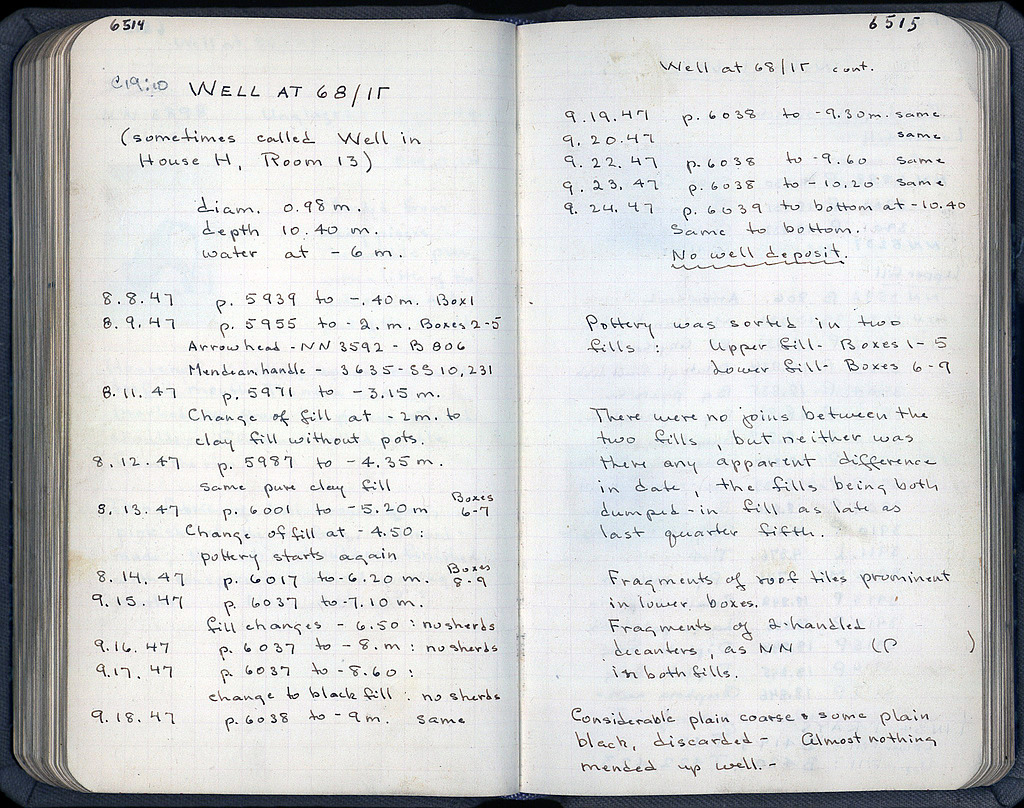 6514
C19:10 WELL AT 68/ΙΓ
(sometimes called Well in
House H, Room 13)
diam. 0.98 m.
depth 10.40 m.
water at - 6 m.
8.8.47 p. 5939 to -.40 m. Box 1
8.9.47 p. 5955 to -2. m. Boxes 2-5
Arrowhead - NN 3592 - B 806
Mendean handle - 3635 - SS 10,231
8.11.47 p. 5971 to -3.15 m.
Change of fill at -2m. to
clay fill without pots.
8.12.47 p. 5987 to -4.35 m.
same pure clay fill
8.13.47 p. 6001 to -5.20 m Boxes 6-7
Change of fill at -4.50:
pottery starts again
8.14.47 p. 6017 to -6.20 m. Boxes 8-9
9.15.47 p. 6037 to -7.10 m.
fill changes - 6.50: no sherds
9.16.47 p. 6037 to -8.m: no sherds
9.17.47 p. 6037 to -8.60:
change to black fill: no sherds
9.18.47 p. 6038 to -9m. same
6515
Well at 68/ΙΓ cont.
9.19.47 p. 6038 to -9.30m. same
9.20.47 same
9.22.47 p. 6038 to -9.60 same
9.23.47 p. 6038 to -10.20 same
9.24.47 p. 6039 to bottom at -10.40
Same to bottom.
No well deposit.
Pottery was sorted in two
fills: Upper fill - Boxes 1-5
Lower fill - Boxes 6-9
There were no joins between the
two fills, but neither was
there any apparent difference
in date, the fills being both
dumped-in fill as late as
last quarter fifth.
Fragments of roof tiles prominent
in lower boxes.
Fragments of 2-handled
decanters, as NN (P )
in both fills.
Considerable plain coarse & some plain
black, discarded - Almost nothing
mended up well.-